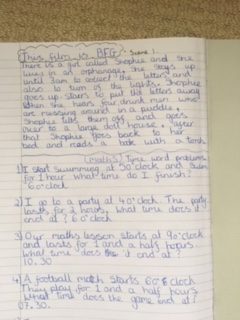 This film is BFG Scene 1
There is a girl called Shophie and she
lives in an orphanage, she stays up
until 3am to collect the letters and
also to turn of the lights. Shophie
goes up stairs to put the letters away
when she hears four drunk men who
are messing around in a puddle.
Shophie tells them off and goes
over to a large doll house, after
that Shophie goes back to her
bed and reads a book with a torch.
(maths) Time word problems
1) I start swimming at 5o'clock and swim
for 1 hour what time do I finish?
6 o'clock
2) I go to a party at 4o'clock. The party
lasts for 2 hours, what time does it
end at? 6 o'clock
3) Our maths lesson starts at 9o'clock
and lasts for 1 and a half hours
what time does it end?
10.30
4) A football match starts 6o'clock
They play for 1 and a half hours
What time does the game end at?
07.30.